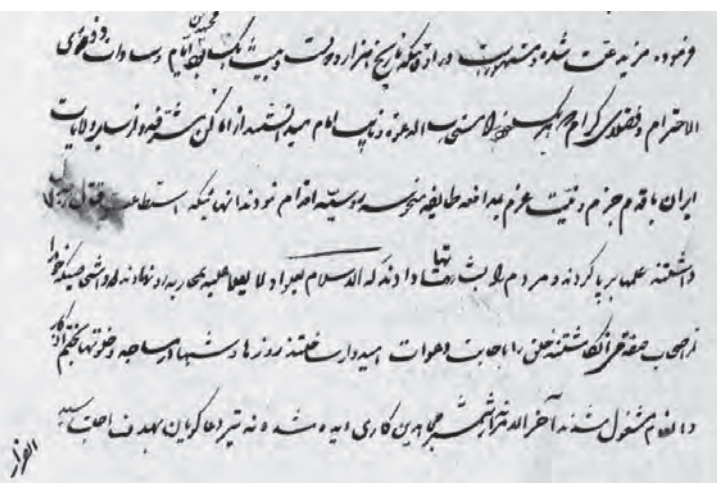 فرموده مزید علت شده و مشهور است در اوقاتیکه تاریخ هزار و دویست و بیست یک بود مجتهدین ایام و سادات ذوی
الاحترام و فضلای کرام که هر یک خود را مستجاب الدعوه و نایب امام میدانستند از اماکن مشرفه و از سایر ولایات
ایران با قدم جزم و نیت عزم بمدافعه طایفه منحوسه روسیه اقدام نمودند انهائیکه استطاعت قتال و جدال
داشتند علمها بر پا کردند و مردم را بشارتها دادند که الاسلام یعلو و لا یعلی علیه بمحاربه رو نهادند و اشخاصیکه خود را
از اصحاب صفه می انگاشتند خلق را باجابت دعوات امیدوار ساختند روزها و شبها در مساجد و خلوتها بختم اذکار
و انعام مشغول شدند آخر الامر نه از شمشیر مجاهدین کاری دیده شد و نه تیر دعا گویان بهدف اجابت رسید
الفرار